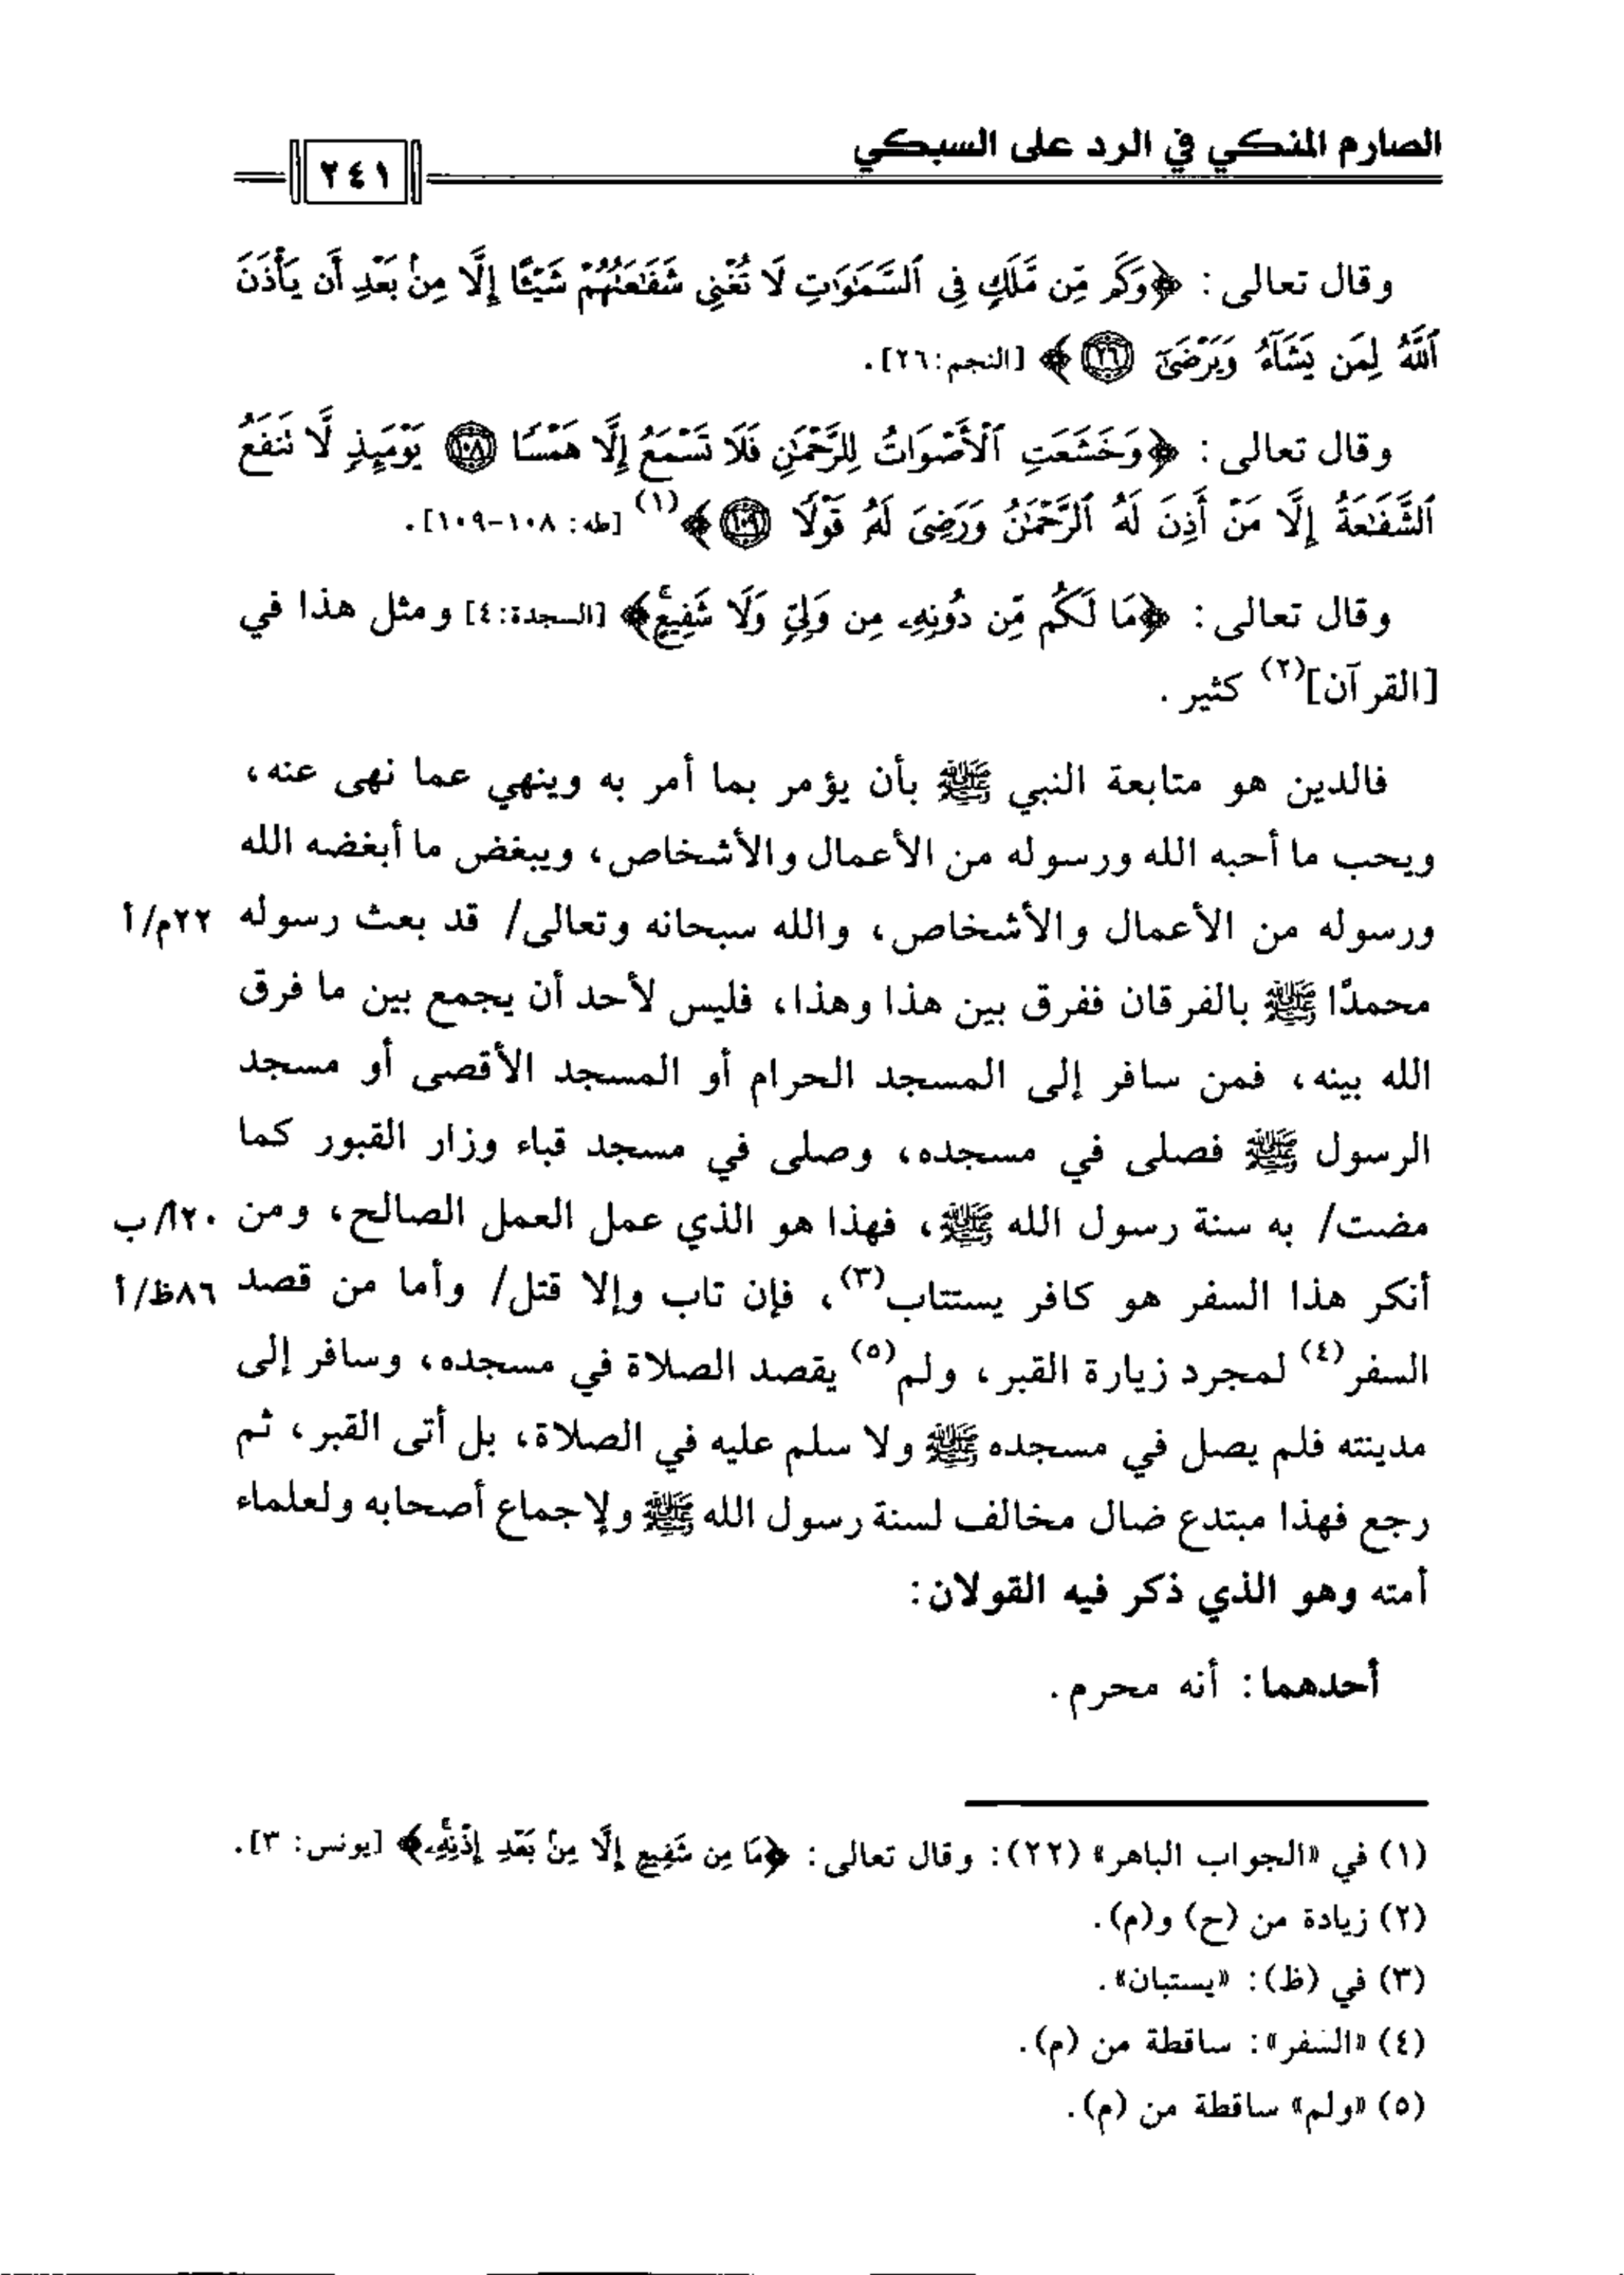 الصارم المنكي في الرد على السبكي
٢٤١
وقال تعالى: ﴿وَكَم مِّن مَّلَكٍ فِى ٱلسَّمَٰوَٰتِ لَا تُغْنِى شَفَٰعَتُهُمْ شَيْـًٔا إِلَّا مِنۢ بَعْدِ أَن يَأْذَنَ
ٱللَّهُ لِمَن يَشَآءُ وَيَرْضَىٰٓ ٢٦﴾ [النجم:٢٦].
وقال تعالى: ﴿وَخَشَعَتِ ٱلْأَصْوَاتُ لِلرَّحْمَٰنِ فَلَا تَسْمَعُ إِلَّا هَمْسًا ١٠٨ يَوْمَئِذٍ لَّا تَنفَعُ
ٱلشَّفَٰعَةُ إِلَّا مَنْ أَذِنَ لَهُ ٱلرَّحْمَٰنُ وَرَضِىَ لَهُۥ قَوْلًا ١٠٩﴾(١) [طه: ١٠٨-١٠٩].
وقال تعالى: ﴿مَا لَكُم مِّن دُونِهِۦ مِن وَلِىٍّ وَلَا شَفِيعٍ﴾ [السجدة:٤] ومثل هذا في
[القرآن](٢) كثير.
فالدين هو متابعة النبي ﷺ بأن يؤمر بما أمر به وينهي عما نهى عنه،
ويحب ما أحبه الله ورسوله من الأعمال والأشخاص، ويبغض ما أبغضه الله
ورسوله من الأعمال والأشخاص، والله سبحانه وتعالى/ قد بعث رسوله ٢٢م/أ
محمدًا ﷺ بالفرقان ففرق بين هذا وهذا، فليس لأحد أن يجمع بين ما فرق
الله بينه، فمن سافر إلى المسجد الحرام أو المسجد الأقصى أو مسجد
الرسول ﷺ فصلى في مسجده، وصلى في مسجد قباء وزار القبور كما
مضت/ به سنة رسول الله ﷺ، فهذا هو الذي عمل العمل الصالح، ومن ٢٠أ/ب
أنكر هذا السفر هو كافر يستتاب(٣)، فإن تاب وإلا قتل/ وأما من قصد ٨٦ظ/أ
السفر(٤) لمجرد زيارة القبر، ولم(٥) يقصد الصلاة في مسجده، وسافر إلى
مدينته فلم يصل في مسجده ﷺ ولا سلم عليه في الصلاة، بل أتى القبر، ثم
رجع فهذا مبتدع ضال مخالف لسنة رسول الله ﷺ ولإجماع أصحابه ولعلماء
أمته وهو الذي ذكر فيه القولان:
أحدهما: أنه محرم.
(١) في «الجواب الباهر» (٢٢): وقال تعالى: ﴿مَا مِن شَفِيعٍ إِلَّا مِنۢ بَعْدِ إِذْنِهِۦ﴾ [يونس: ٣].
(٢) زيادة من (ح) و(م).
(٣) في (ظ): «يستبان».
(٤) «السفر»: ساقطة من (م).
(٥) «ولم» ساقطة من (م).